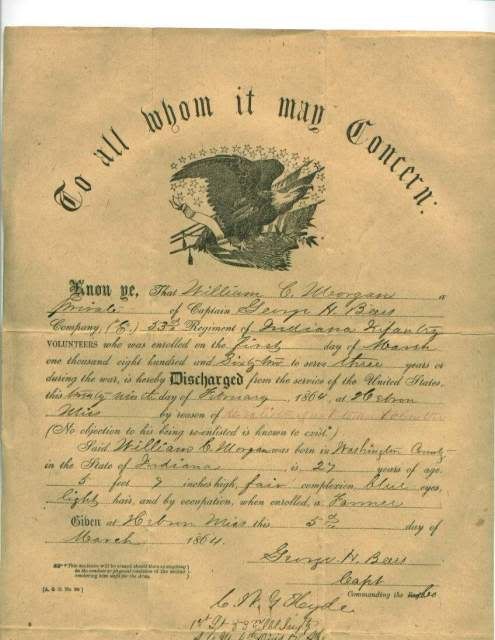 To all whom it may Concern:
Know ye, That William C. Morgan a
Private of Captain George H. Beers
Company, (E.) 53d Regiment of Indiana Infantry
VOLUNTEERS who was enrolled on the first day of March
one thousand eight hundred and Sixty two to serve three years or
during the war, is hereby Discharged from the service of the United States,
this day of February, 1864, at Hebron
Miss by reason of
(No objection to his being re-enlisted is known to exist.*)
Said William C. Morgan was born in Washington County
in the State of Indiana is 27 years of age,
5 feet 7 inches high, fair complexion, blue eyes,
light hair, and by occupation, when enrolled, a Farmer
Given at Hebron Miss this 5th day of
March 1864.
* This sentence will be erased should there be anything
in the conduct or physical condition of the soldier
rendering him unfit for the Army.
George H. Beers
Capt
[A. G. O. No. 99] Commanding the Co